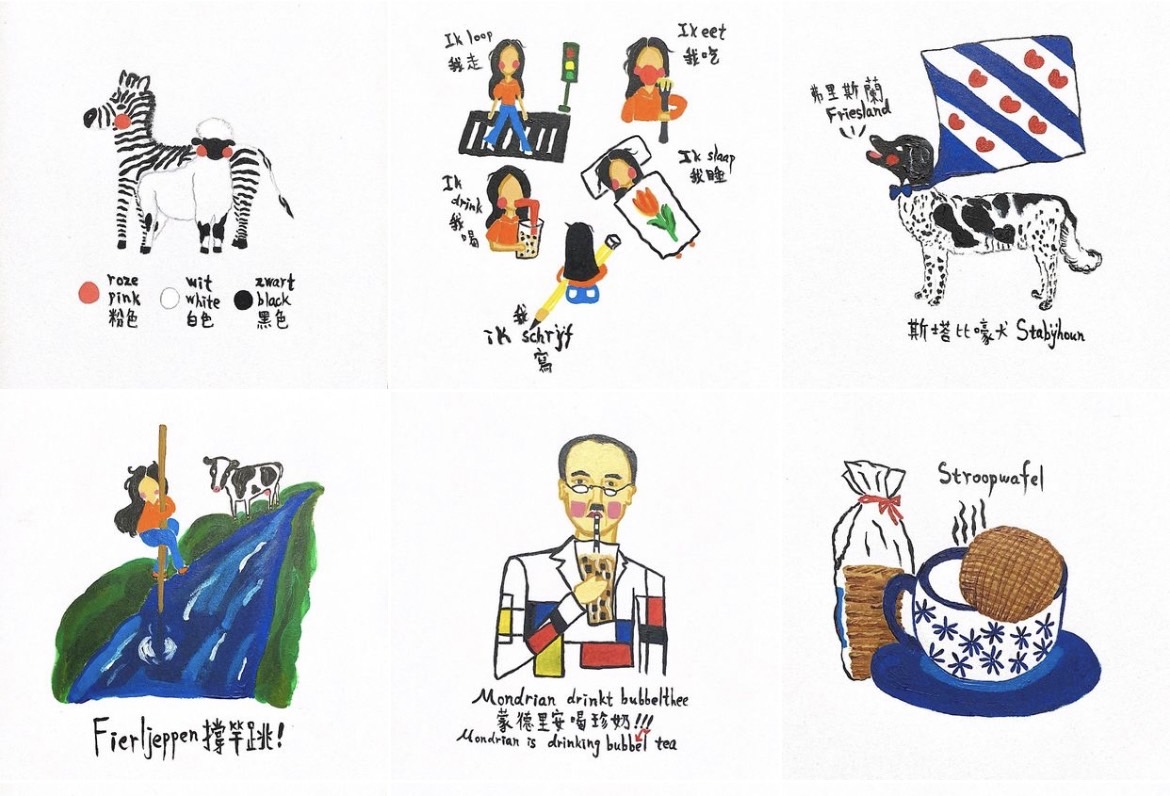 roze
pink
粉色
wit
white
白色
zwart
black
黑色
Ik loop
我走
Ik eet
我吃
Ik slaap
我睡
Ik
drink
我
喝
我
ik schrijf
寫
弗里斯蘭
Friesland
斯塔比嚎犬 Stabijhoun
Fierljeppen 撐竿跳!
Mondrian drinkt bubbelthee
蒙德里安喝珍奶!!!
Mondrian is drinking bubbel tea
Stroopwafel